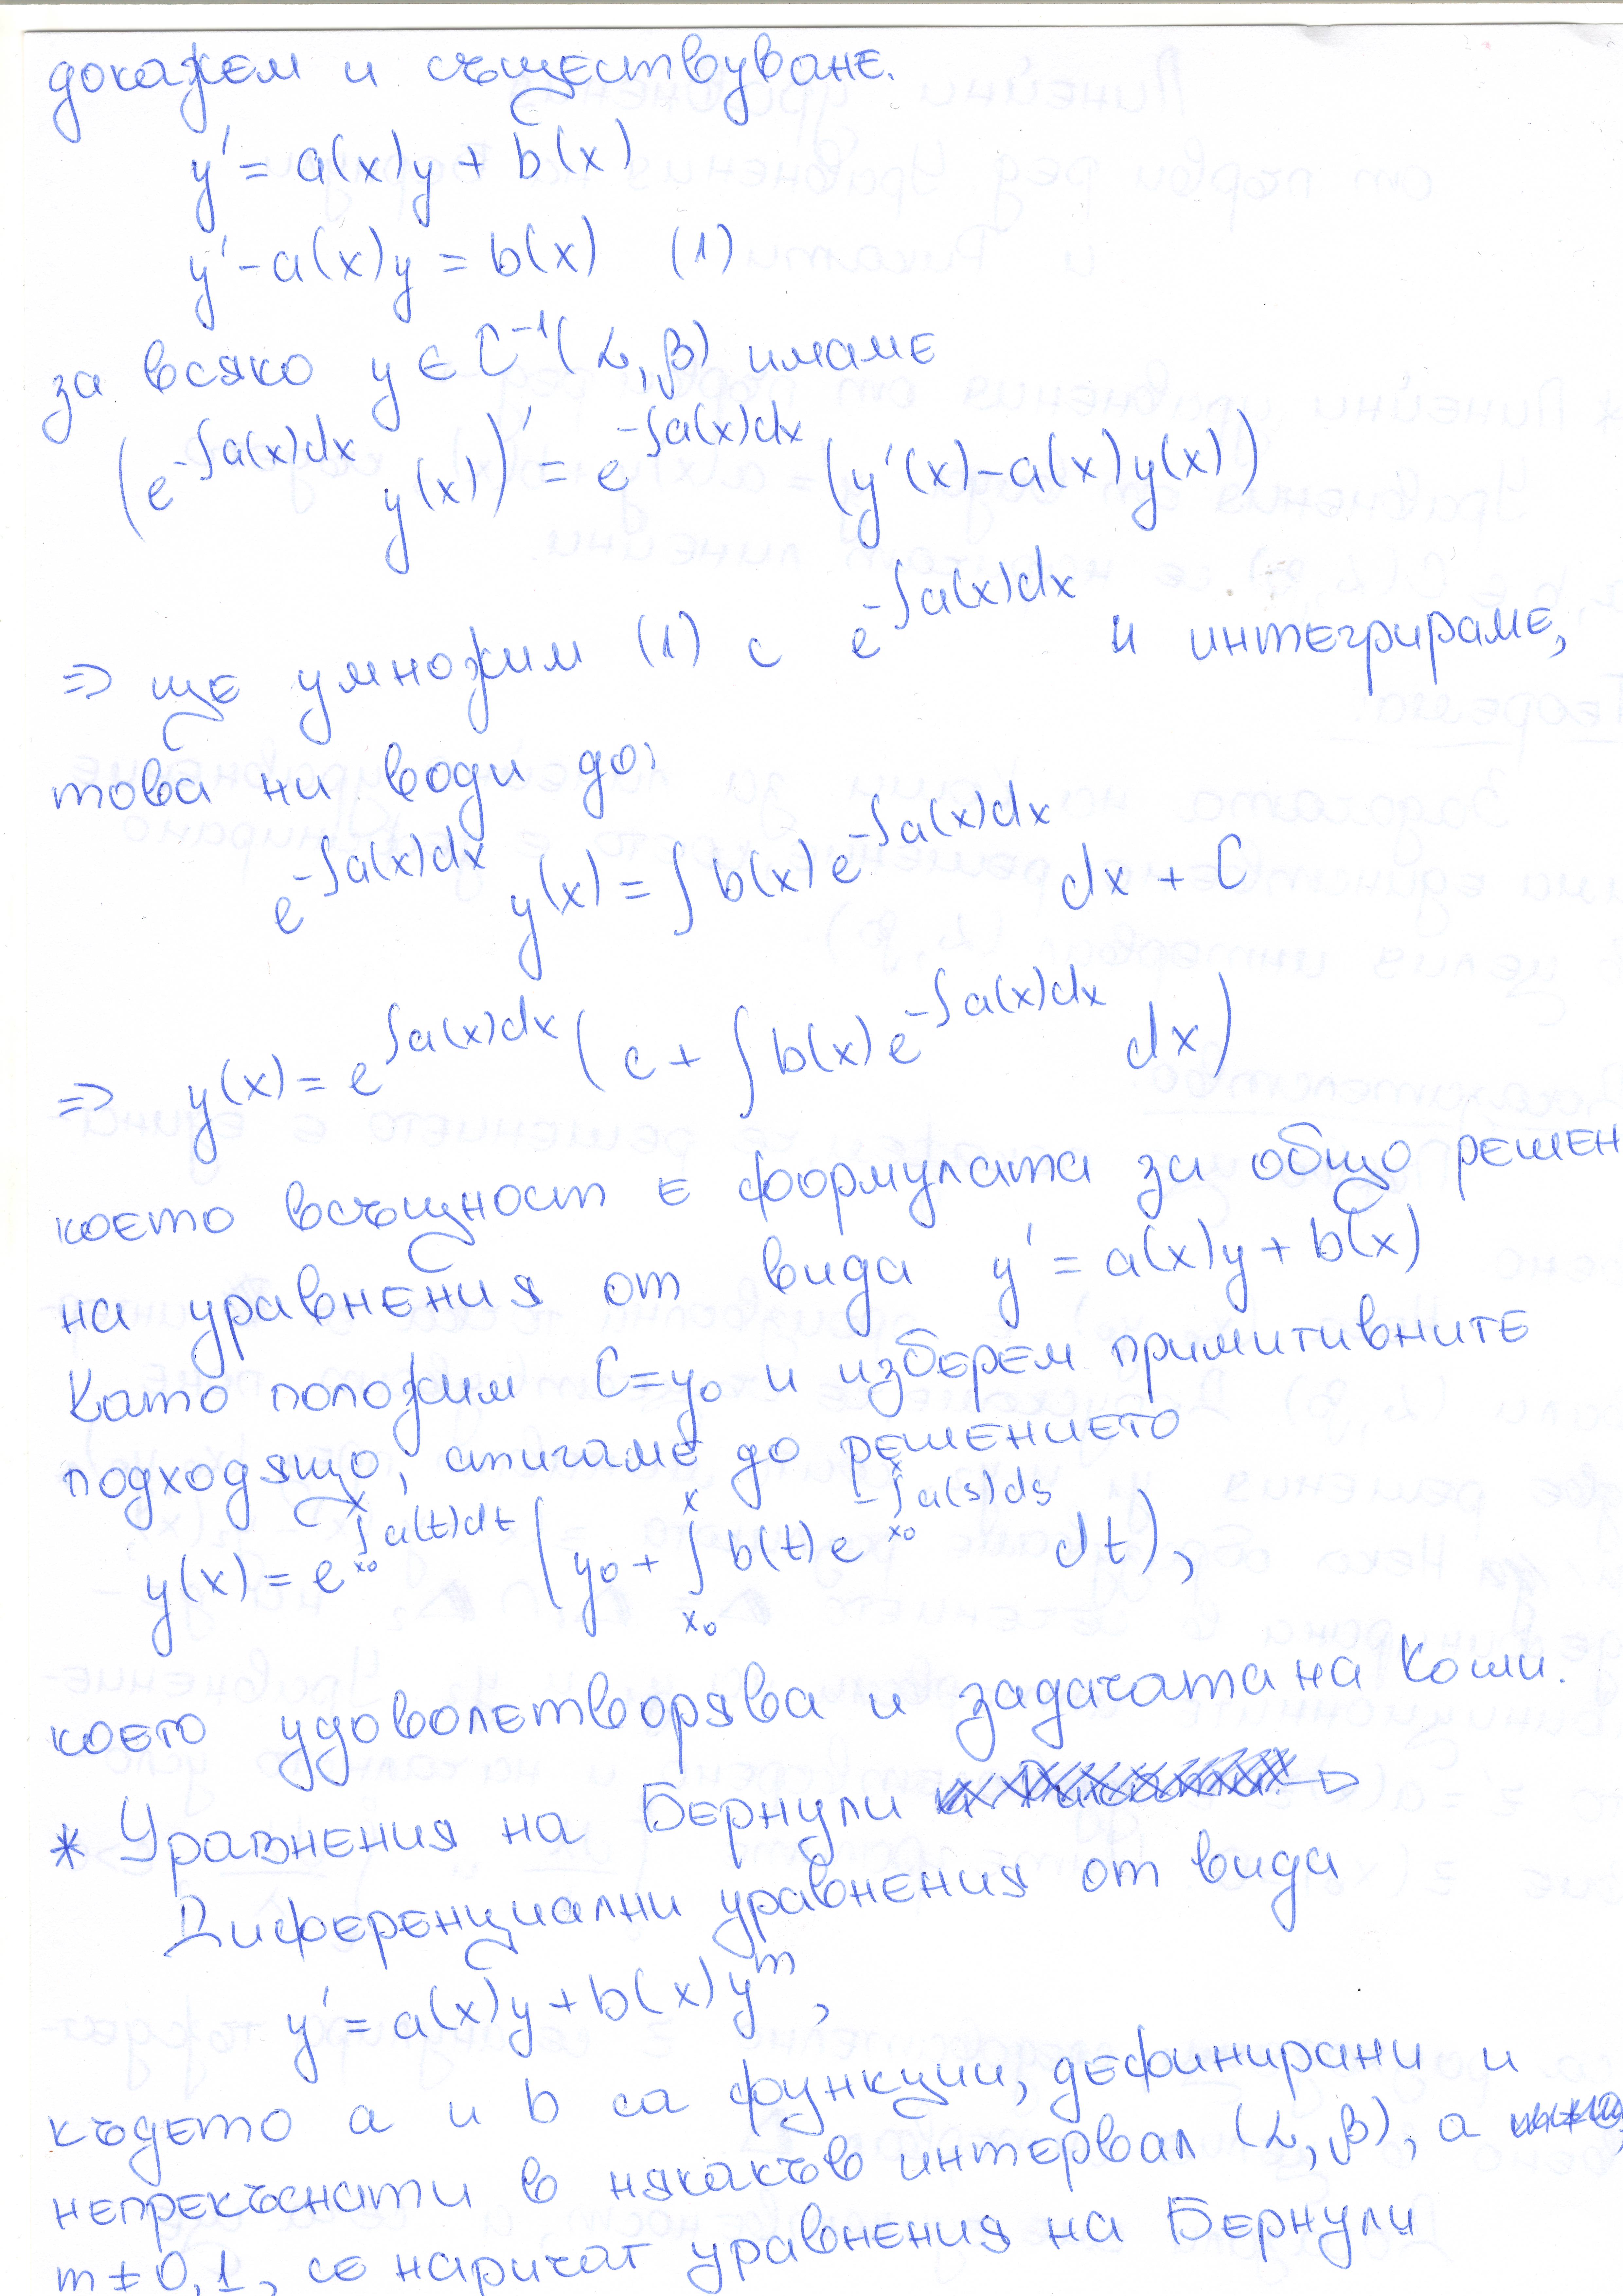 докажем и съществуване.
y' = a(x)y + b(x)
y' - a(x)y = b(x) (1)
за всяко y ∈ C⁻¹(α, β) имаме
(e^{-∫a(x)dx} y(x))' = e^{-∫a(x)dx} (y'(x) - a(x)y(x))
⇒ ще умножим (1) с e^{-∫a(x)dx} и интегрираме,
това ни води до:
e^{-∫a(x)dx} y(x) = ∫ b(x) e^{-∫a(x)dx} dx + C
⇒ y(x) = e^{∫a(x)dx} (c + ∫ b(x) e^{-∫a(x)dx} dx)
което всъщност е формулата за общо решен
на уравнения от вида y' = a(x)y + b(x)
Като положим C = y₀ и изберем примитивните
подходящо, стигаме до решението
y(x) = e^{∫_{x₀}^{x} a(t)dt} (y₀ + ∫_{x₀}^{x} b(t) e^{-∫_{x₀}^{x} a(s)ds} dt),
което удоволетворява и задачата на Коши.
* Уравнения на Бернули →
Диференциални уравнения от вида
y' = a(x)y + b(x)y^m,
където a и b са функции, дефинирани и
непрекъснати в някакъв интервал (α, β), а
m ≠ 0, 1, се наричат уравнения на Бернули